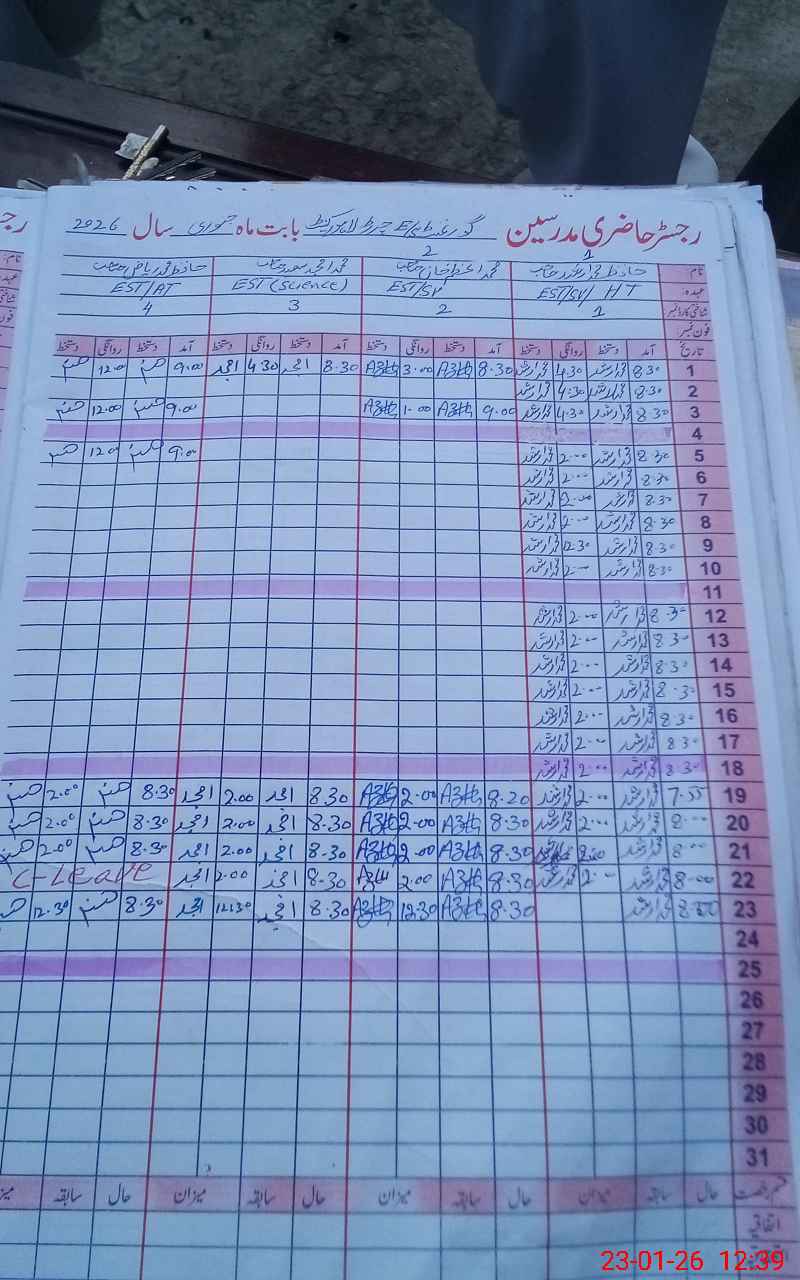 رجسٹر حاضری مدرسین گورنمنٹ بابت ماہ جنوری سال 2026
1 2
نام: حافظ محمد ارشد صاحب محمد امجد سعید صاحب حافظ محمد ریاض صاحب
عہدہ: EST/SV/ HT EST/SV EST (Science) EST/AT
شناختی کارڈ نمبر 1 2 3 4
فون نمبر
تاریخ آمد دستخط روانگی دستخط آمد دستخط روانگی دستخط آمد دستخط روانگی دستخط آمد دستخط روانگی دستخط
1 8.30 محمد ارشد 4.30 محمد ارشد 8.30 3.00 8.30 امجد 4.30 امجد 9.00 12.00
2 8.30 محمد ارشد 4.30 محمد ارشد
3 8.30 محمد ارشد 4.30 محمد ارشد 9.00 1.00 9.00 12.00
4
5 8.30 محمد ارشد 2.00 محمد ارشد 9.00 12.00
6 8.30 محمد ارشد 2.00 محمد ارشد
7 8.30 محمد ارشد 2.00 محمد ارشد
8 8.30 محمد ارشد 2.00 محمد ارشد
9 8.30 محمد ارشد 12.30 محمد ارشد
10 8.30 محمد ارشد 2.00 محمد ارشد
11
12 8.30 محمد ارشد 2.00 محمد ارشد
13 8.30 محمد ارشد 2.00 محمد ارشد
14 8.30 محمد ارشد 2.00 محمد ارشد
15 8.30 محمد ارشد 2.00 محمد ارشد
16 8.30 محمد ارشد 2.00 محمد ارشد
17 8.30 محمد ارشد 2.00 محمد ارشد
18 8.30 محمد ارشد 2.00 محمد ارشد
19 7.55 محمد ارشد 2.00 محمد ارشد 8.20 2.00 8.30 امجد 2.00 امجد 8.30 2.00
20 8.00 محمد ارشد 2.00 محمد ارشد 8.30 2.00 8.30 امجد 2.00 امجد 8.30 2.00
21 8.00 محمد ارشد 2.00 8.30 2.00 8.30 امجد 2.00 امجد 8.30 2.00
22 8.00 محمد ارشد 2.00 محمد ارشد 8.30 2.00 8.30 امجد 2.00 امجد C-Leave
23 محمد ارشد 8.30 12.30 8.30 امجد 12.30 امجد 8.30 12.30
24
25
26
27
28
29
30
31
قسم رخصت حال سابقہ میزان حال سابقہ میزان حال سابقہ میزان حال سابقہ
اتفاقیہ
23-01-26 12:39